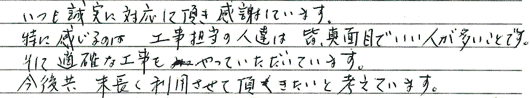 いつも誠実に対応して頂き感謝しています。
特に感じるのは 工事担当の人達は 皆真面目でいい人が多いことです。
そして適確な工事をやっていただいています。
今後共 末長く利用させて頂きたいと考えています。